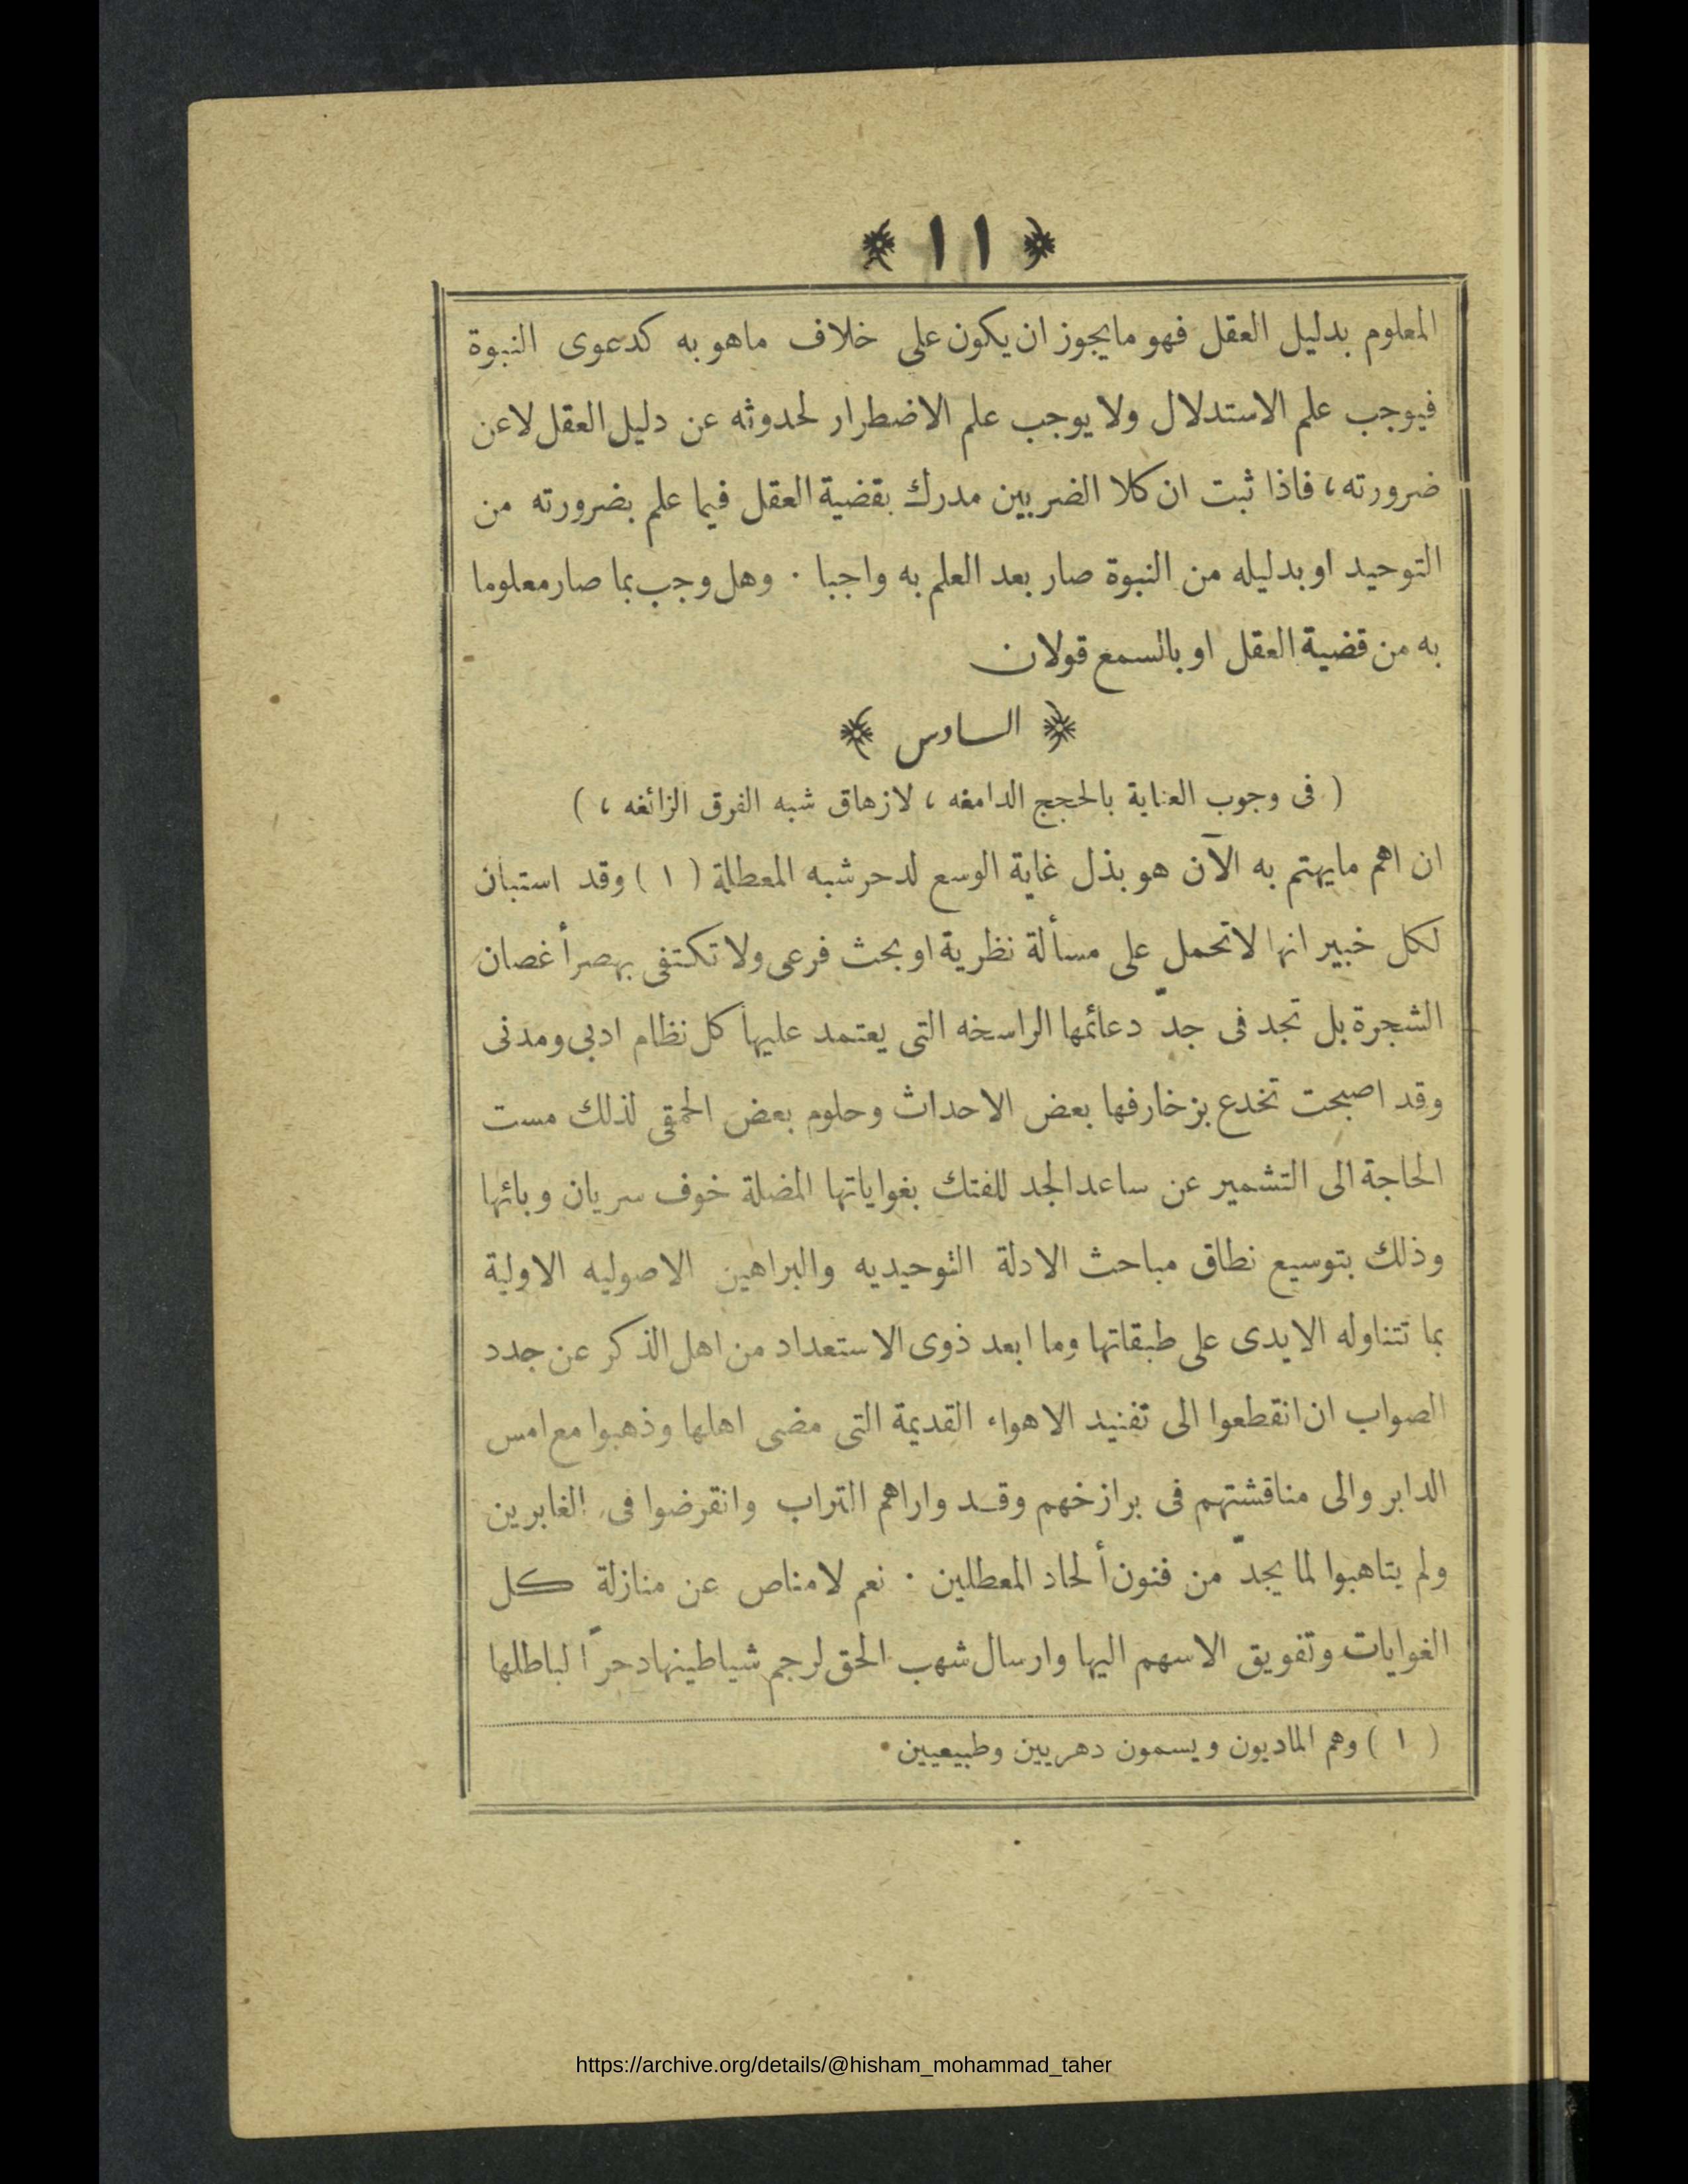 ﴿ ١١ ﴾
المعلوم بدليل العقل فهو مايجوز ان يكون على خلاف ماهو به كدعوى النبوة
فيوجب علم الاستدلال ولا يوجب علم الاضطرار لحدوثه عن دليل العقل لاعن
ضرورته، فاذا ثبت ان كلا الضربين مدرك بقضية العقل فيما علم بضرورته من
التوحيد او بدليله من النبوة صار بعد العلم به واجبا . وهل وجب بما صار معلوما
به من قضية العقل او بالسمع قولان
﴿ السادس ﴾
( فى وجوب العناية بالحجج الدامغه ، لازهاق شبه الفرق الزائغه ، )
ان اهم مايهتم به الآن هو بذل غاية الوسع لدحر شبه المعطلة ( ١ ) وقد استبان
لكل خبير انها لاتحمل على مسألة نظرية او بحث فرعى ولا تكتفى بهصر أغصان
الشجرة بل تجد فى جدّ دعائمها الراسخه التى يعتمد عليها كل نظام ادبى ومدنى
وقد اصبحت تخدع بزخارفها بعض الاحداث وحلوم بعض الحمقى لذلك مست
الحاجة الى التشمير عن ساعد الجد للفتك بغواياتها المضلة خوف سريان وبائها
وذلك بتوسيع نطاق مباحث الادلة التوحيديه والبراهين الاصوليه الاولية
بما تتناوله الايدى على طبقاتها وما ابعد ذوى الاستعداد من اهل الذكر عن جدد
الصواب ان انقطعوا الى تفنيد الاهواء القديمة التى مضى اهلها وذهبوا مع امس
الدابر والى مناقشتهم فى برازخهم وقد واراهم التراب وانقرضوا فى الغابرين
ولم يتاهبوا لما يجدّ من فنون ألحاد المعطلين . نعم لامناص عن منازلة كل
الغوايات وتفويق الاسهم اليها وارسال شهب الحق لرجم شياطينها دحراً لباطلها
( ١ ) وهم الماديون ويسمون دهريين وطبيعيين .
https://archive.org/details/@hisham_mohammad_taher